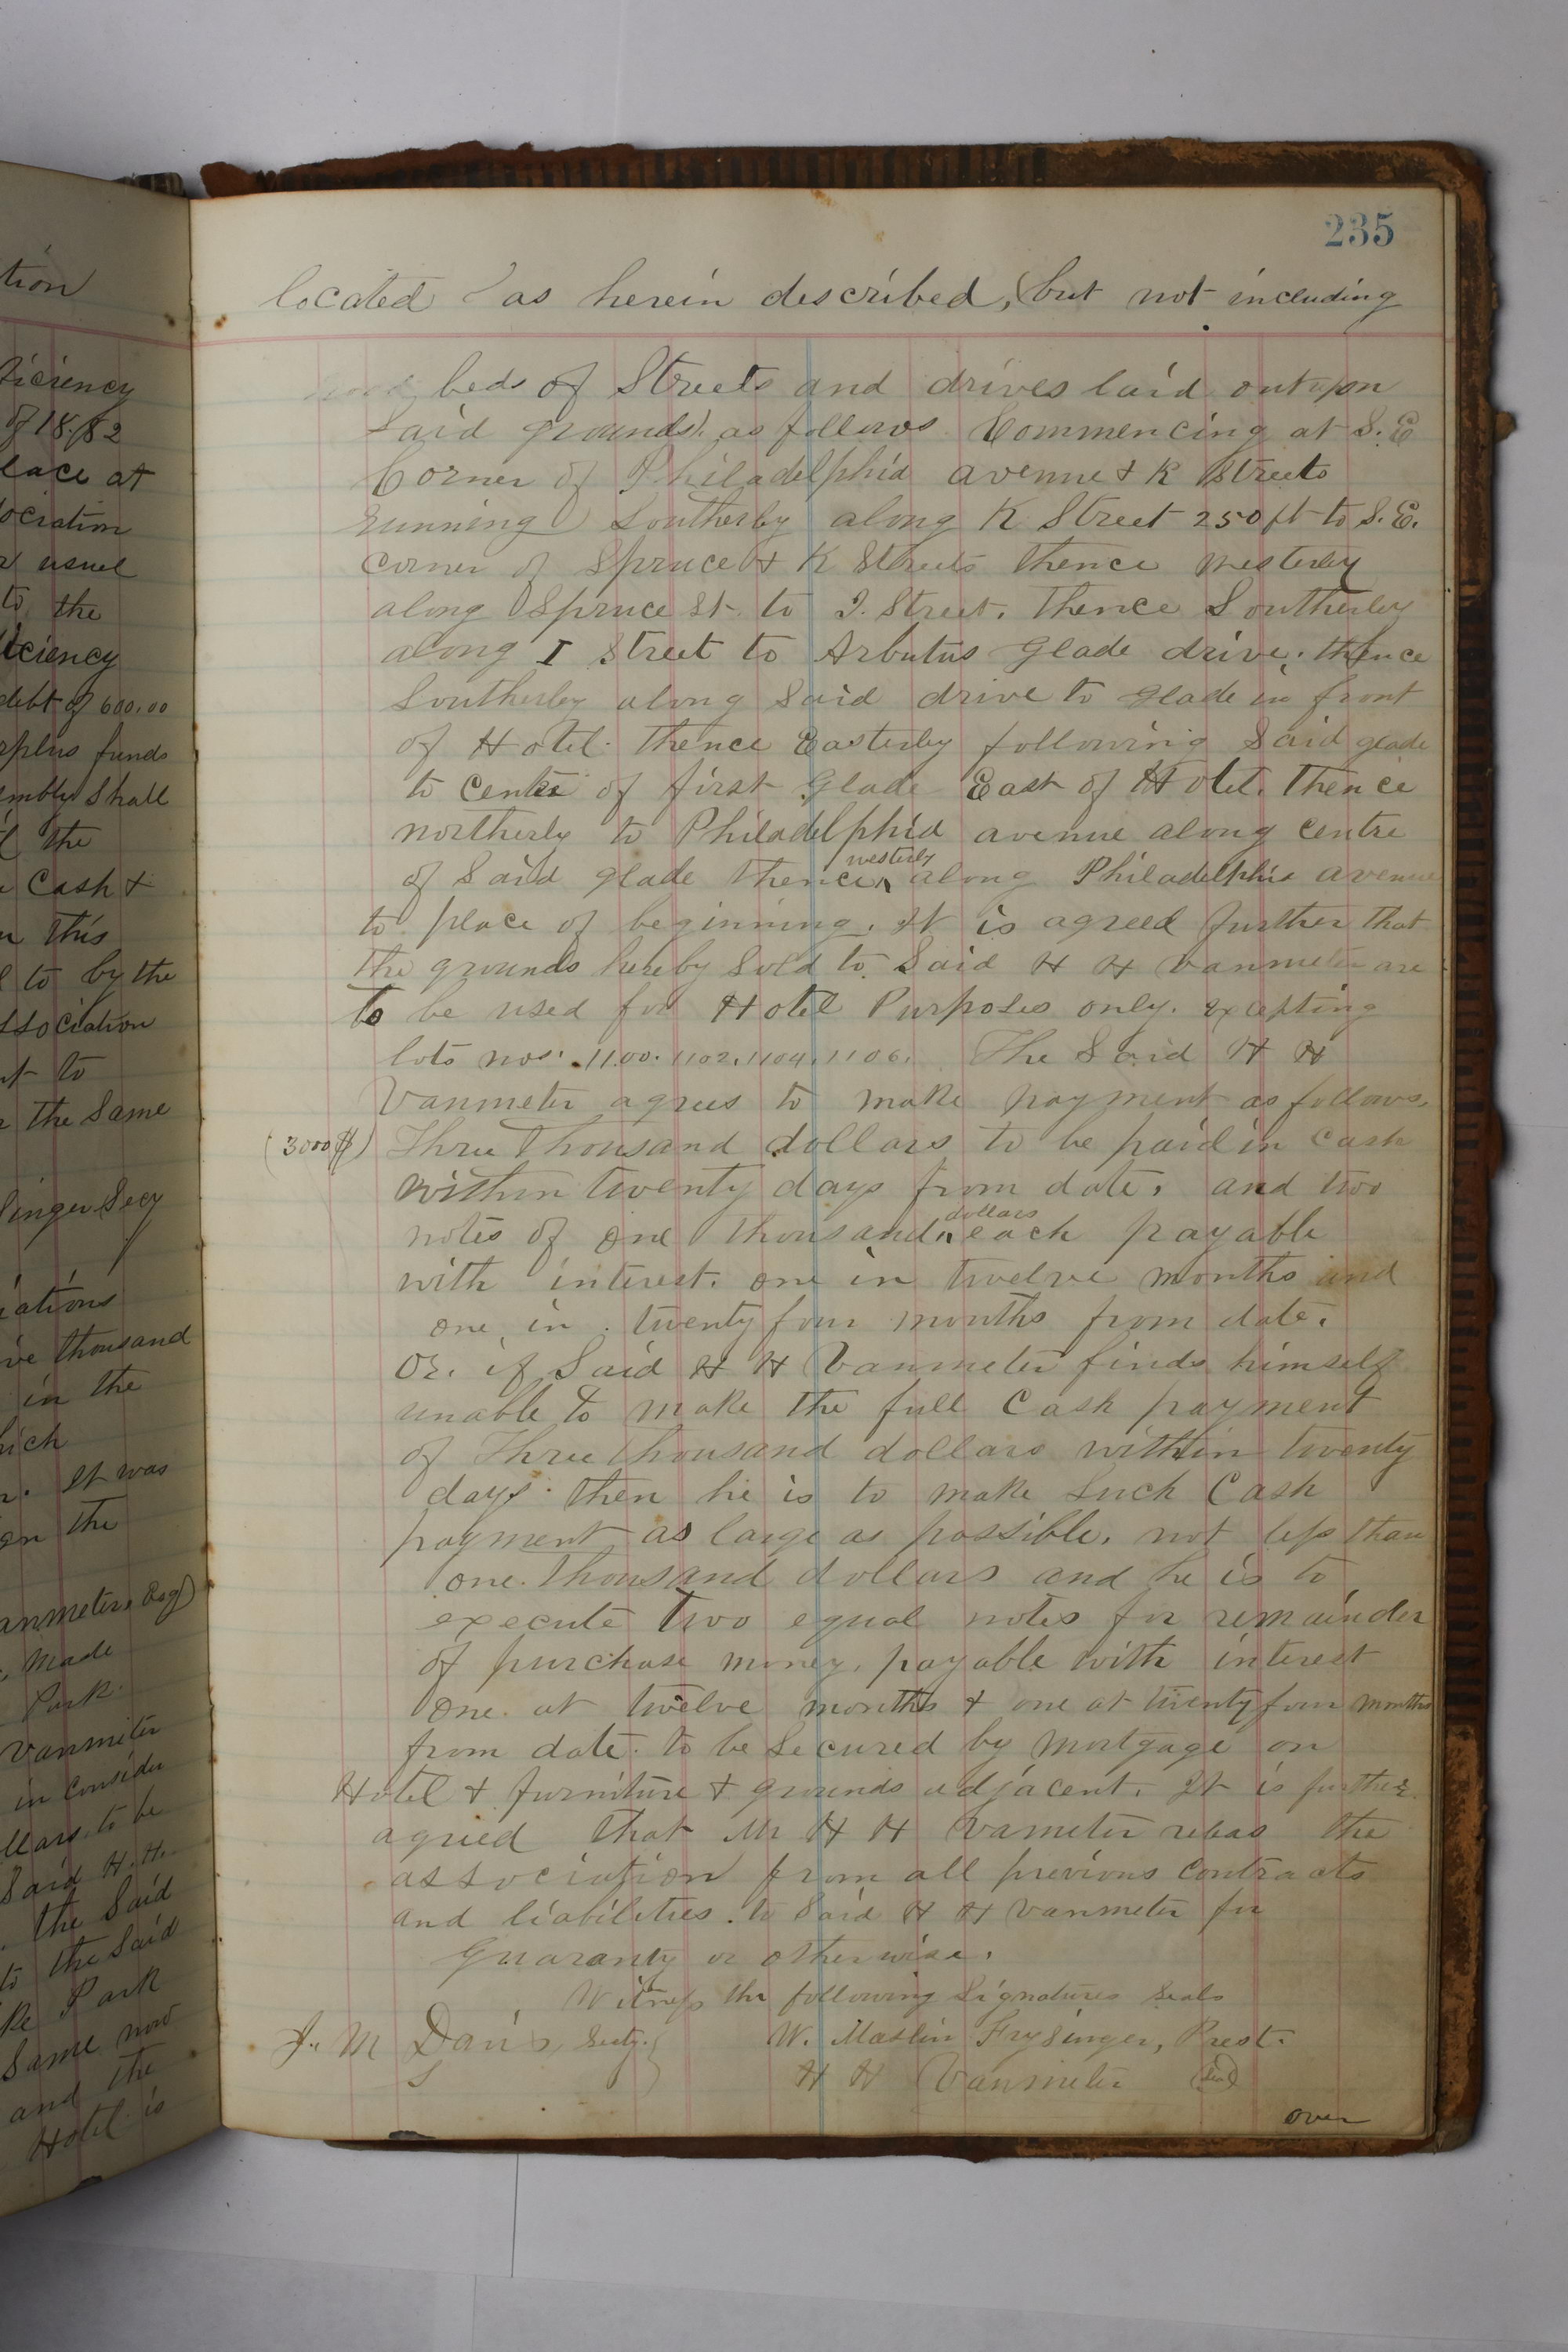 tion
ficiency
of 18.82
lace at
ociation
usuel
to the
iciency
debt of 600.00
rplus funds
embly shall
the
Cash +
this
to by the
ssociation
to
the Same
linger Secy
iations
ive thousand
in the
hich
It was
on the
anmeter, Esq
made
Park.
Vanmeter
in Consider
llars to be
Said H. H.
the Said
to the Said
ke Park
Same now
and the
Hotel is
235
located as herein described, (but not including
beds of Streets and drives laid out upon
Said grounds). as follows. Commencing at S. E
Corner of Philadelphia avenue & K Streets
running Southerly along K Street 250 ft to S. E.
Corner of Spruce & K Streets thence Westerly
along Spruce St. to I. Street. Thence Southerley
along I Street to Arbutus Glade drive. thence
Southerley along Said drive to Glade in front
of Hotel. Thence Easterley following Said glade
to Centre of first Glade East of Hotel. Thence
northerly to Philadelphia avenue along Centre
of Said glade thence westerly along Philadelphia avenue
to place of beginning. It is agreed further that
the grounds hereby Sold to Said H H Vanmeter are
to be used for Hotel Purposes only. excepting
lots nos. 1100. 1102. 1104. 1106. The Said H H
Vanmeter agrees to make payment as follows.
(3000$) Three Thousand dollars to be paid in Cash
within twenty days from date. and two
notes of one thousand dollars each payable
with interest. one in twelve months and
one in twenty four months from date.
Or. if Said H H Vanmeter finds himself
unable to make the full Cash payment
of Three thousand dollars within twenty
days. then he is to make Such Cash
payment as large as possible. not less than
one. thousand dollars and he is to
execute two equal notes for remainder
of purchase money. payable with interest
One at twelve months & one at twenty four months
from date. to be Secured by Mortgage on
Hotel & furniture & grounds adjacent. It is further
agreed that Mr H H Vameter releas the
association from all previous contracts
and liabilities. to Said H H Vanmeter for
Guaranty or otherwise.
Witness the following Signatures Seals
J. M Davis, Secty. W. Maslin Frysinger, Prest.
H H Vanmeter (Seal)
over